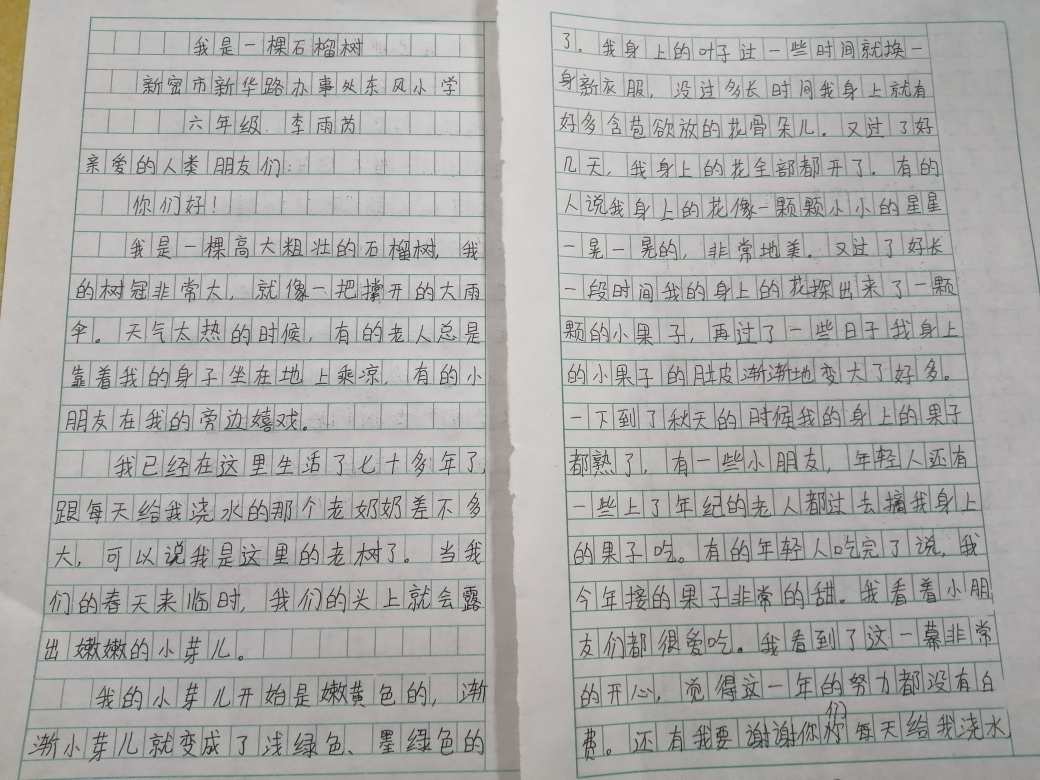 我是一棵石榴树
新密市新华路办事处东风小学
六年级 李雨芮
亲爱的人类朋友们:
你们好!
我是一棵高大粗壮的石榴树,我
的树冠非常大,就像一把撑开的大雨
伞。天气太热的时候,有的老人总是
靠着我的身子坐在地上乘凉,有的小
朋友在我的旁边嬉戏。
我已经在这里生活了七十多年了,
跟每天给我浇水的那个老奶奶差不多
大,可以说我是这里的老树了。当我
们的春天来临时,我们的头上就会露
出嫩嫩的小芽儿。
我的小芽儿开始是嫩黄色的,渐
渐小芽儿就变成了浅绿色、墨绿色的
了。我身上的叶子过一些时间就换一
身新衣服,没过多长时间我身上就有
好多含苞欲放的花骨朵儿。又过了好
几天,我身上的花全部都开了。有的
人说我身上的花像一颗颗小小的星星
一晃一晃的,非常地美。又过了好长
一段时间我的身上的花探出来了一颗
颗的小果子,再过了一些日子我身上
的小果子的肚皮渐渐地变大了好多。
一下到了秋天的时候我的身上的果子
都熟了,有一些小朋友,年轻人还有
一些上了年纪的老人都过去摘我身上
的果子吃。有的年轻人吃完了说,我
今年接的果子非常的甜。我看着小朋
友们都很爱吃。我看到了这一幕非常
的开心,觉得这一年的努力都没有白
费。还有我要谢谢你们每天给我浇水